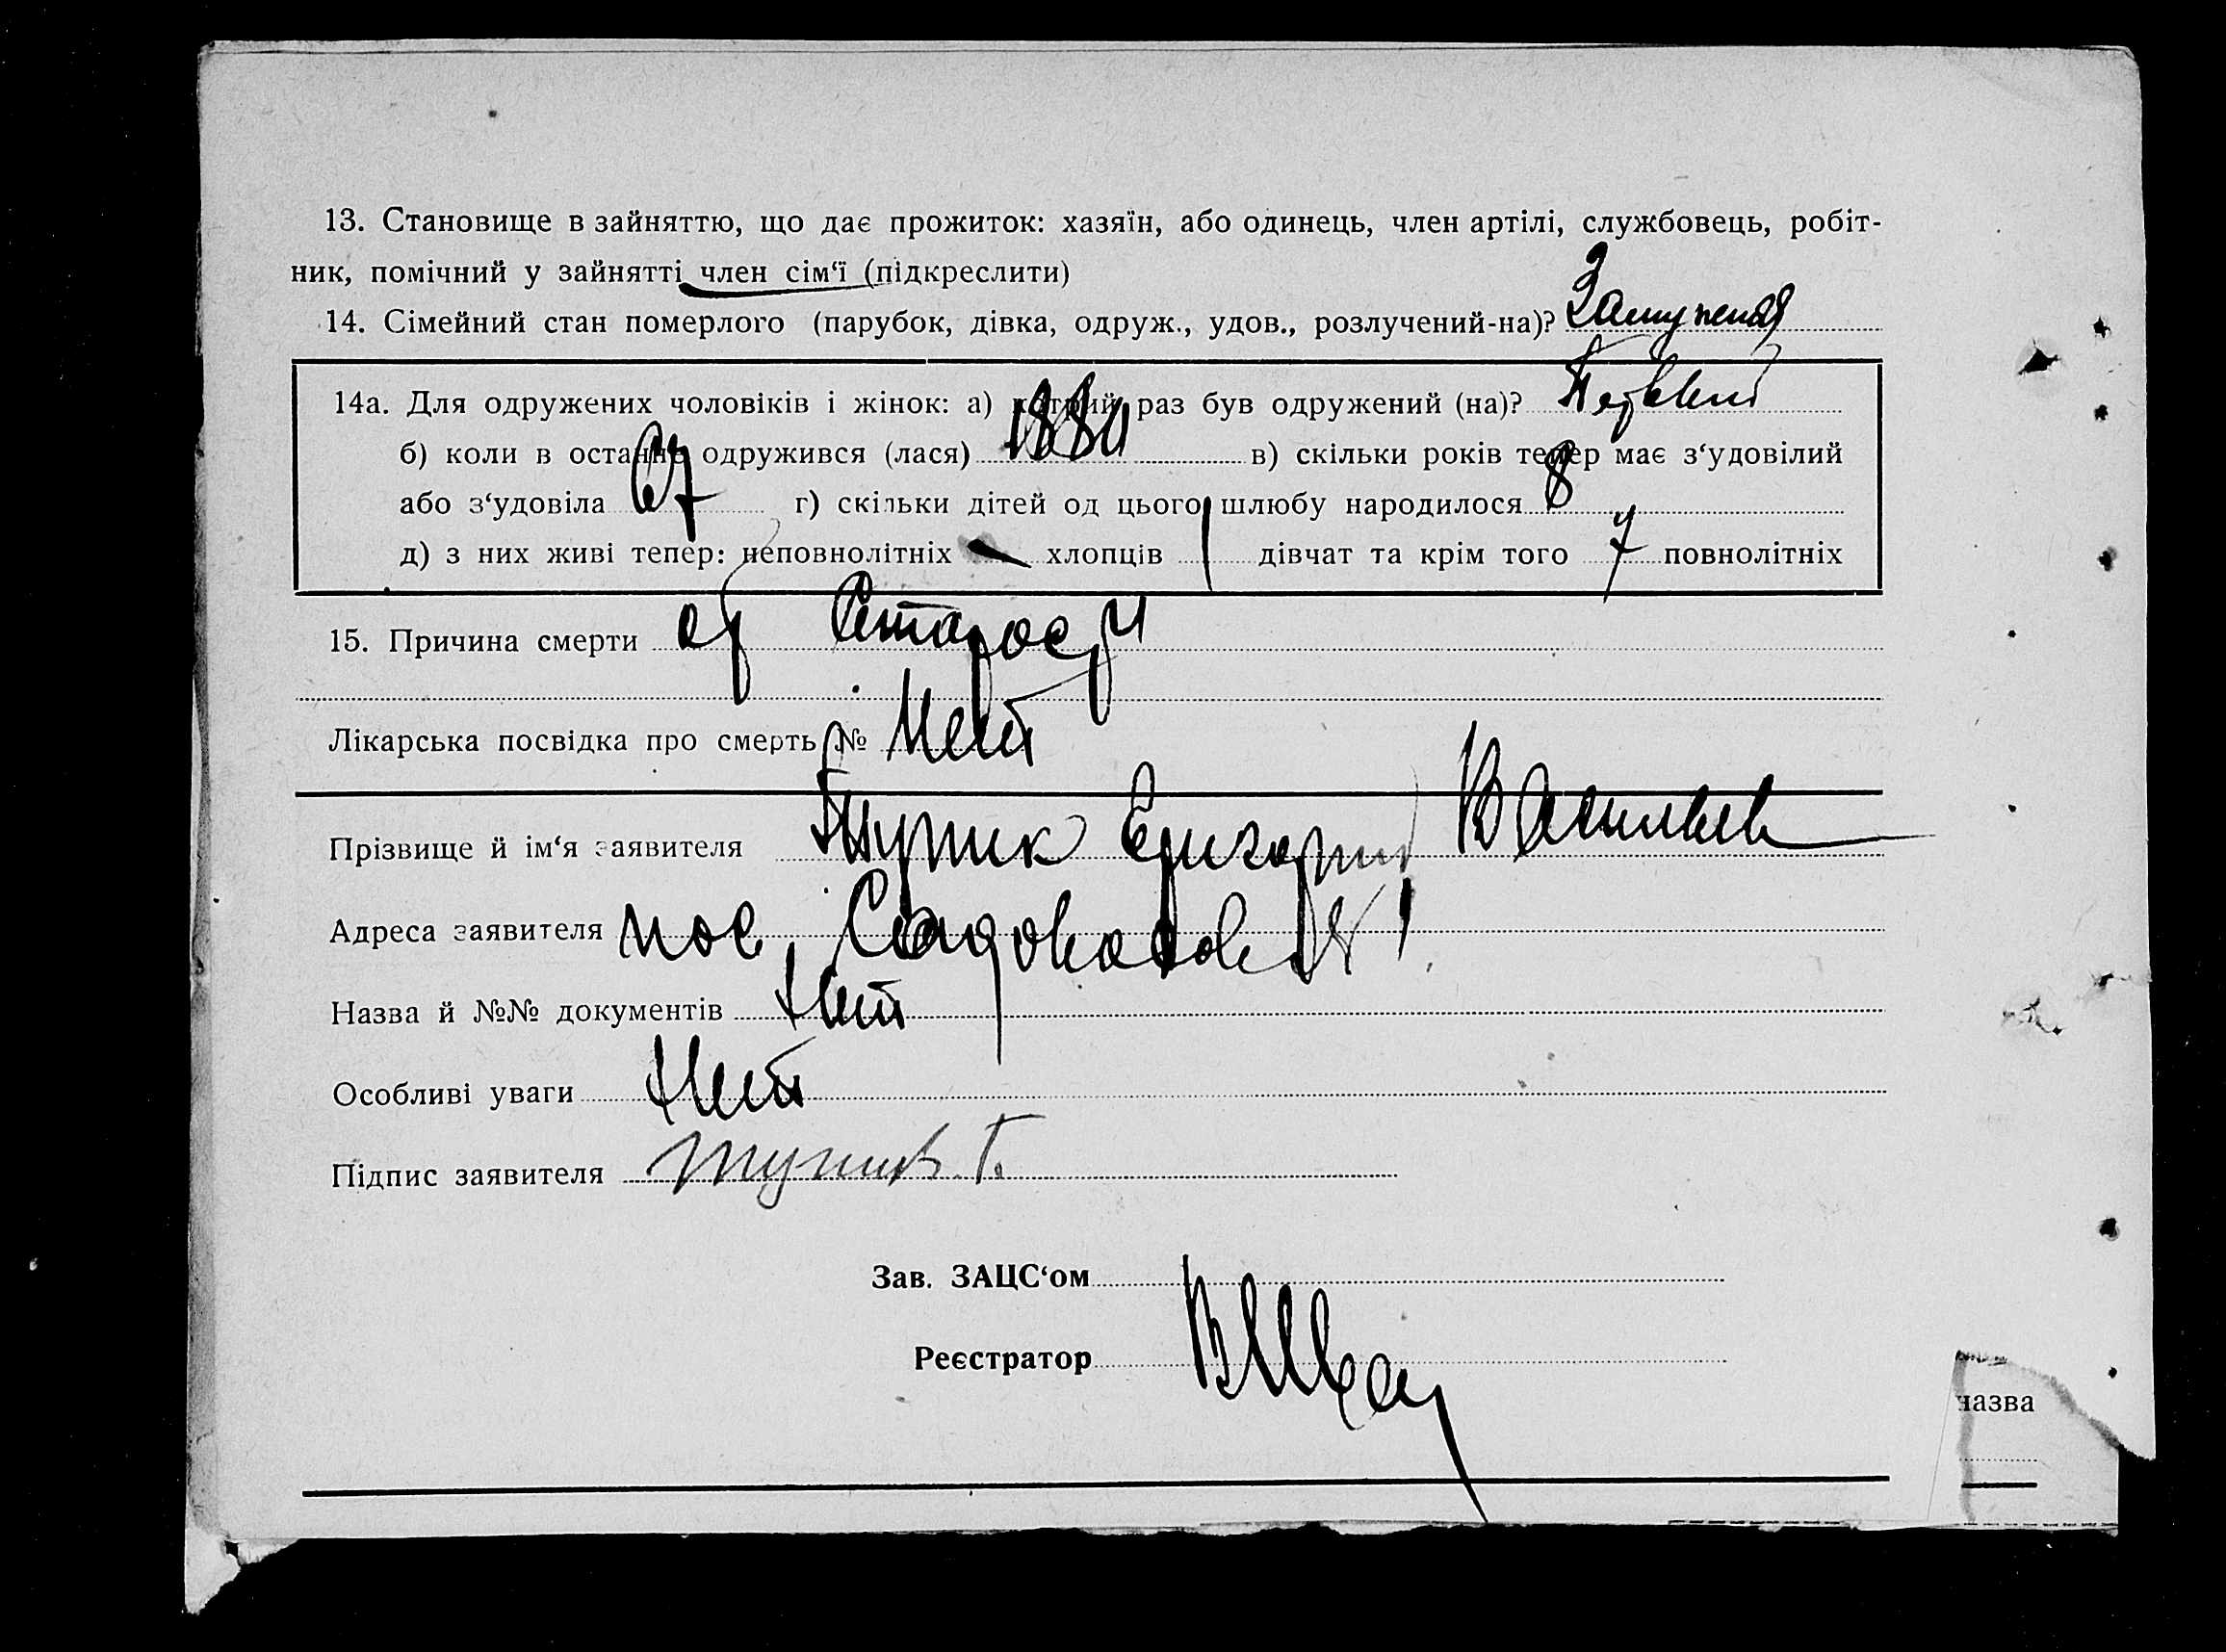 13. Становище в зайняттю, що дає прожиток: хазяїн, або одинець, член артілі, службовець, робіт-
ник, помічний у зайнятті член сім‘ї (підкреслити)
14. Сімейний стан померлого (парубок, дівка, одруж., удов., розлучений-на)? Замужная
14а. Для одружених чоловіків і жінок: а) котрий раз був одружений (на)? Первий
б) коли в останнє одружився (лася) в) скільки років тепер має з‘удовілий
або з‘удовіла 67 г) скільки дітей од цього шлюбу народилося 8
д) з них живі тепер: неповнолітніх хлопців 1 дівчат та крім того 7 повнолітніх
15. Причина смерти от Старости
Лікарська посвідка про смерть № Нет
Прізвище й ім‘я заявителя Григорий Васильев
Адреса заявителя пос.
Назва й №№ документів Нет
Особливі уваги Нет
Підпис заявителя Г.
Зав. ЗАЦС‘ом
Реєстратор
назва